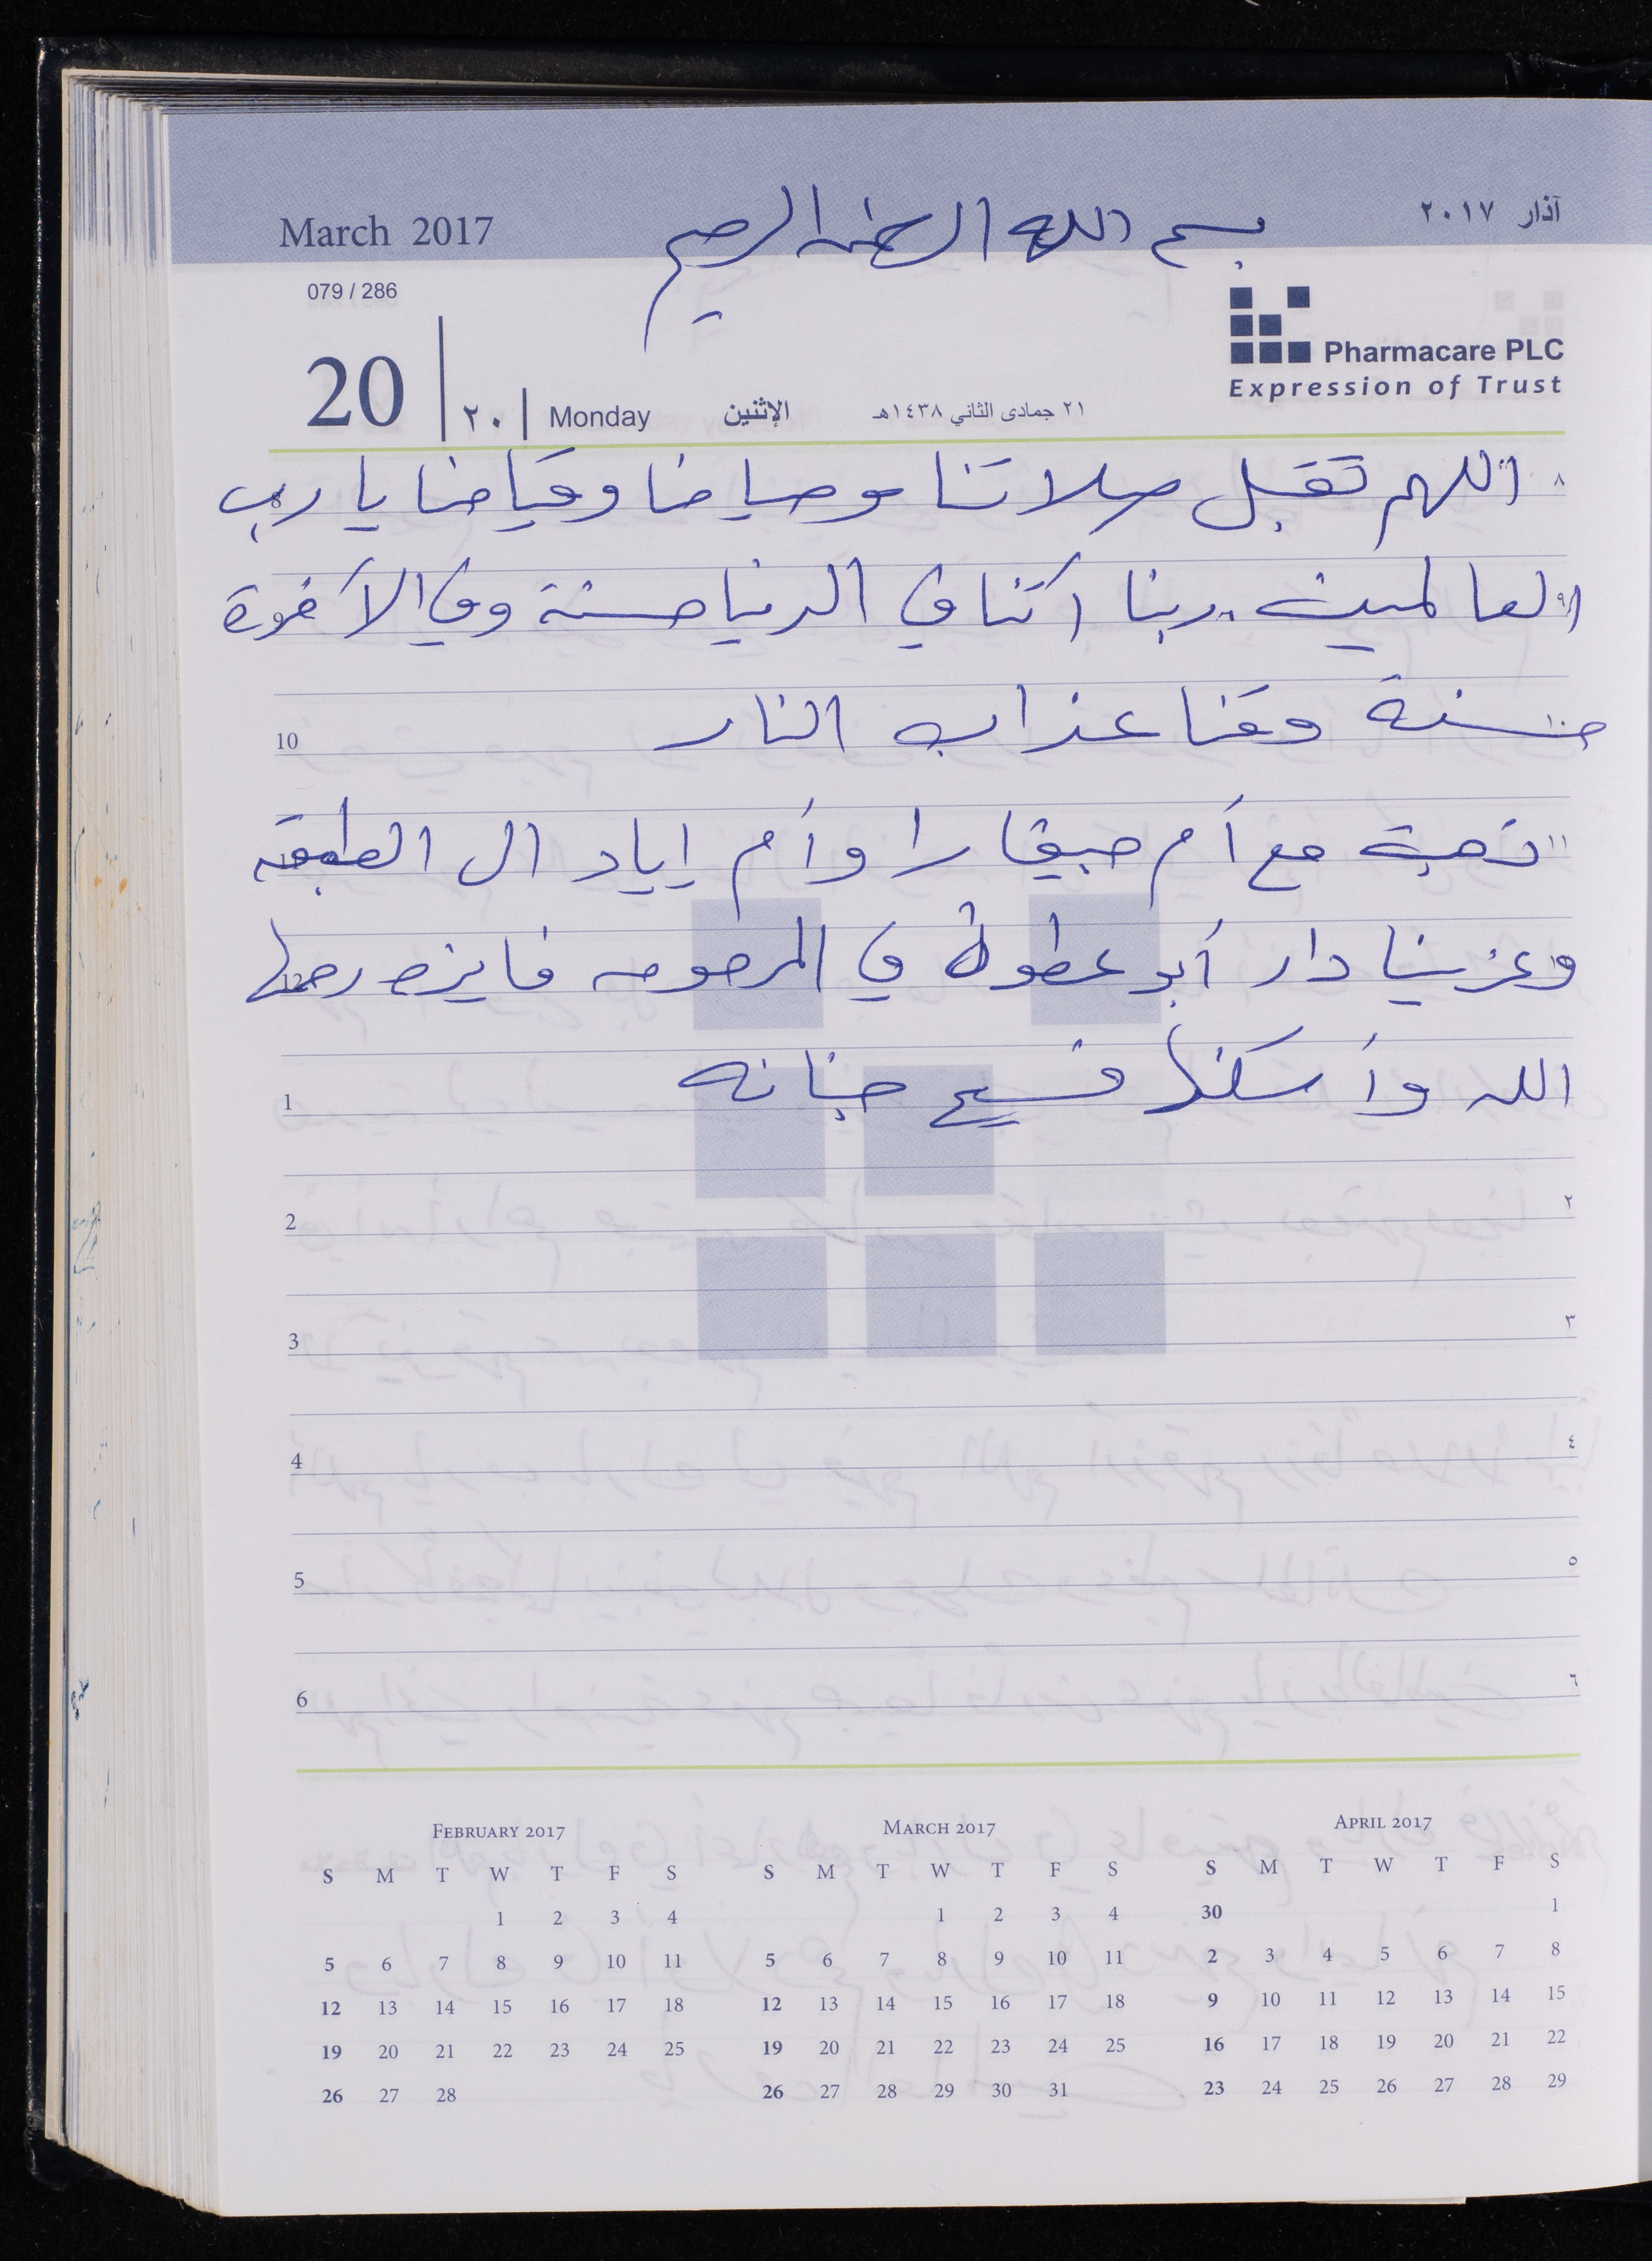 بسم الله الرحمن الرحيم
March 2017
آذار ٢٠١٧
079 / 286
Pharmacare PLC
Expression of Trust
20 ٢٠ Monday الإثنين ٢١ جمادى الثاني ١٤٣٨هـ
٨ اللهم تقبل صلاتنا وصيامنا وقيامنا يا رب
العالمين. ربنا اتنا في الدنيا حسنة وفي الآخرة
10 حسنة وقنا عذاب النار
١١ ذهبت مع أم جيفارا وأم إياد ال الطبقه
وعزينا دار أبو عطوان في المرحومه فايزه رحمها
1 الله وأسكنها فسيح جنانه
2 ٢
3 ٣
4 ٤
5 ٥
6 ٦
February 2017
S M T W T F S
1 2 3 4
5 6 7 8 9 10 11
12 13 14 15 16 17 18
19 20 21 22 23 24 25
26 27 28
March 2017
S M T W T F S
1 2 3 4
5 6 7 8 9 10 11
12 13 14 15 16 17 18
19 20 21 22 23 24 25
26 27 28 29 30 31
April 2017
S M T W T F S
30 1
2 3 4 5 6 7 8
9 10 11 12 13 14 15
16 17 18 19 20 21 22
23 24 25 26 27 28 29